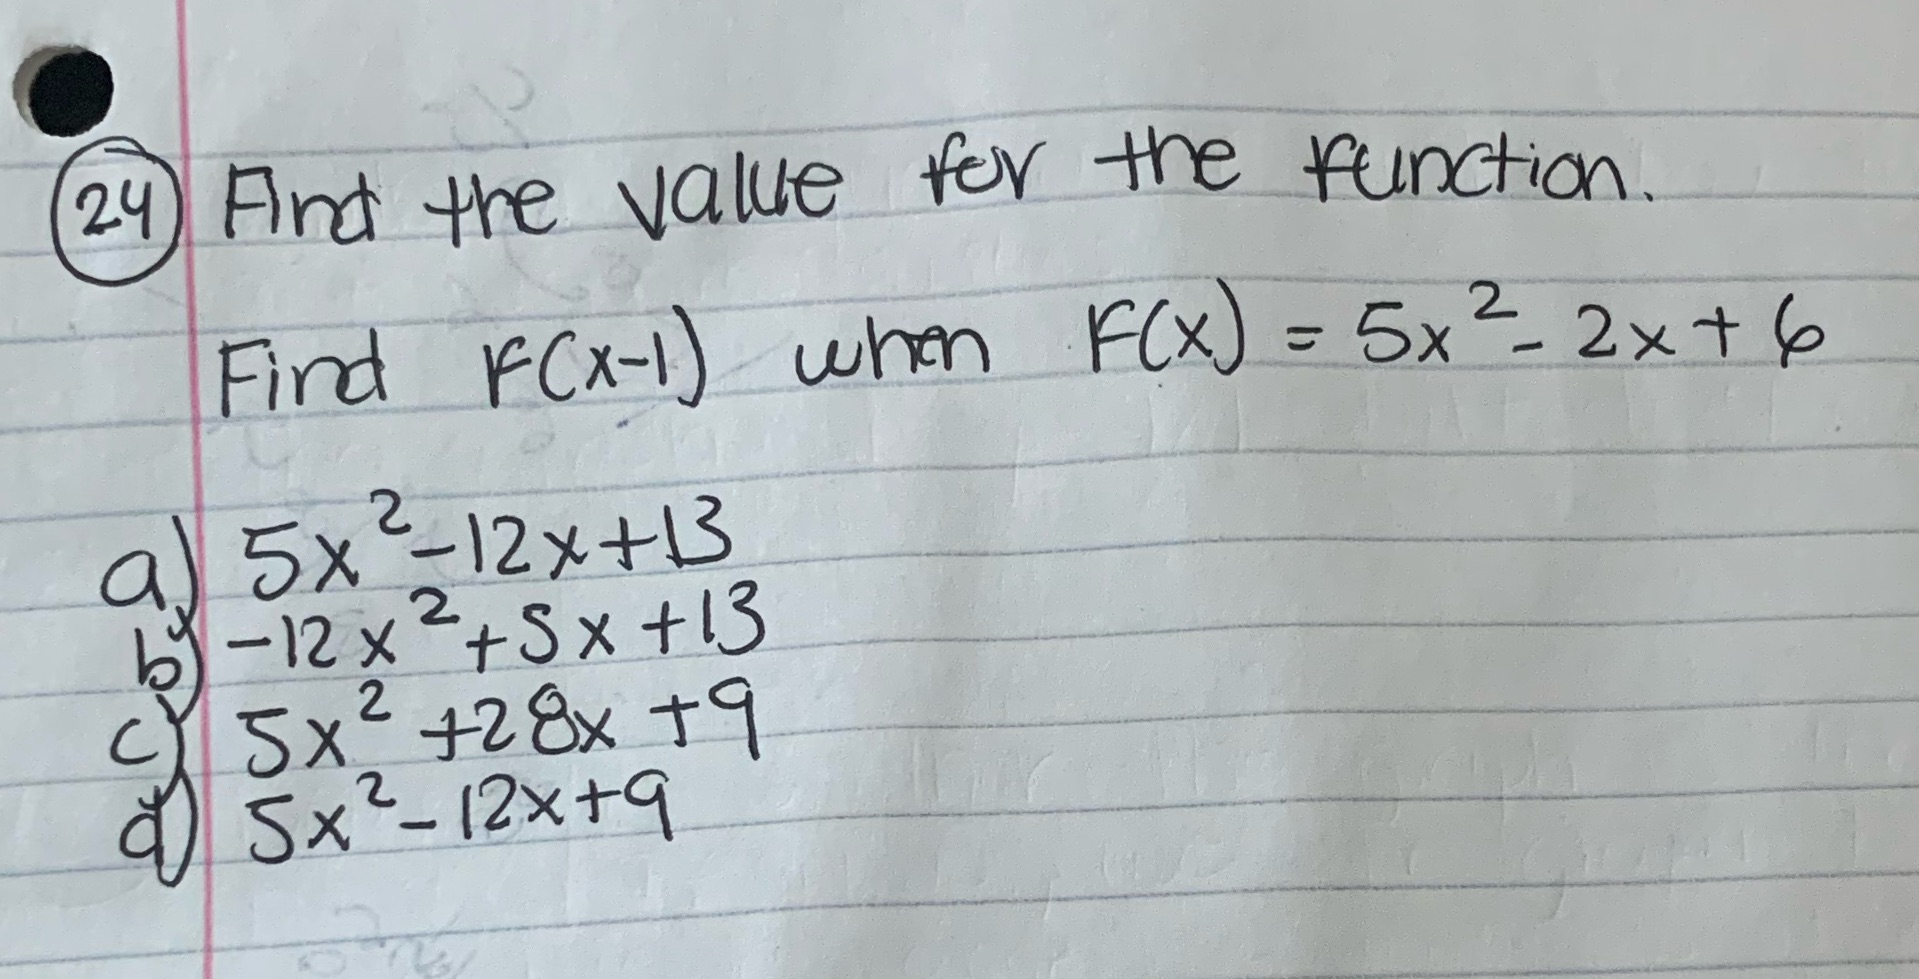 24 Find the value for the function.
Find F(x-1) when F(x) = 5x² - 2x + 6
a) 5x² - 12x + 13
b) -12x² + 5x + 13
c) 5x² + 28x + 9
d) 5x² - 12x + 9